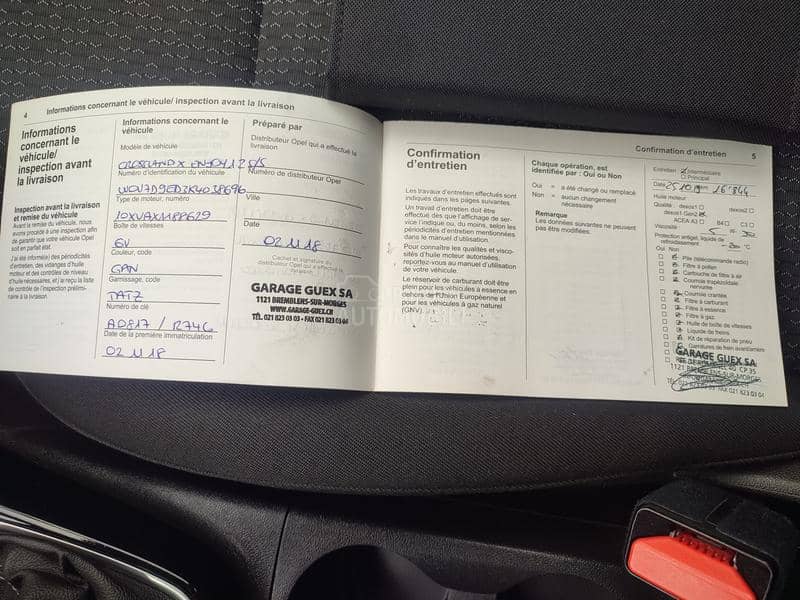 4 Informations concernant le véhicule/ inspection avant la livraison
Informations
concernant le
véhicule/
inspection avant
la livraison
Inspection avant la livraison
et remise du véhicule
Avant la remise du véhicule, nous
avons procédé à une inspection afin
de garantir que votre véhicule Opel
soit en parfait état.
J'ai été informé(e) des périodicités
d'entretien, des vidanges d'huile
moteur et des contrôles de niveau
d'huile nécessaires, et j'ai reçu la liste
de contrôle de l'inspection prélimi-
naire à la livraison.
Informations concernant le
véhicule
Modèle de véhicule
CROSSLAND X ENJOY 1.2 S/S
Numéro d'identification du véhicule
W0V7D9ED2K4038696
Type de moteur, numéro
10XVAX
Boîte de vitesses
6V
Couleur, code
GAN
Garnissage, code
TATZ
Numéro de clé
AD817 / R746
Date de la première immatriculation
02 11 18
Préparé par
Distributeur Opel qui a effectué la
livraison
Numéro de distributeur Opel
Ville
Date
02 11 18
Cachet et signature du
distributeur Opel qui a effectué la
livraison
GARAGE GUEX SA
1121 BREMBLENS-SUR-MORGES
WWW.GARAGE-GUEX.CH
TÉL. 021 823 03 03 • FAX 021 823 03 04
Confirmation d'entretien 5
Confirmation
d'entretien
Les travaux d'entretien effectués sont
indiqués dans les pages suivantes.
Un travail d'entretien doit être
effectué dès que l'affichage de ser-
vice l'indique ou, du moins, selon les
périodicités d'entretien mentionnées
dans le manuel d'utilisation.
Pour connaître les qualités et visco-
sités d'huile moteur autorisées,
reportez-vous au manuel d'utilisation
de votre véhicule.
Le réservoir de carburant doit être
plein pour les véhicules à essence en
dehors de l'Union Européenne et
pour les véhicules à gaz naturel
(GNV).
Chaque opération, est
identifiée par : Oui ou Non
Oui = a été changé ou remplacé
Non = aucun changement
nécessaire
Remarque
Les données suivantes ne peuvent
pas être modifiées.
Entretien Intermédiaire
Principal
Date 25 10 19 km 16'844
Huile moteur
Qualité : dexos1 dexos2
dexos1 Gen2 B4 C3
ACEA A3
Viscosité W-
Protection antigel, liquide de
refroidissement °C
Oui Non
Pile (télécommande radio)
Filtre à pollen
Cartouche de filtre à air
Courroie trapézoïdale
nervurée
Courroie crantée
Filtre à carburant
Filtre à essence
Filtre à gaz
Huile de boîte de vitesses
Liquide de freins
Kit de réparation de pneu
Garnitures de frein avant/arrière
GARAGE GUEX SA
CP 35
1121 BREMBLENS-SUR-MORGES
FAX 021 823 03 04